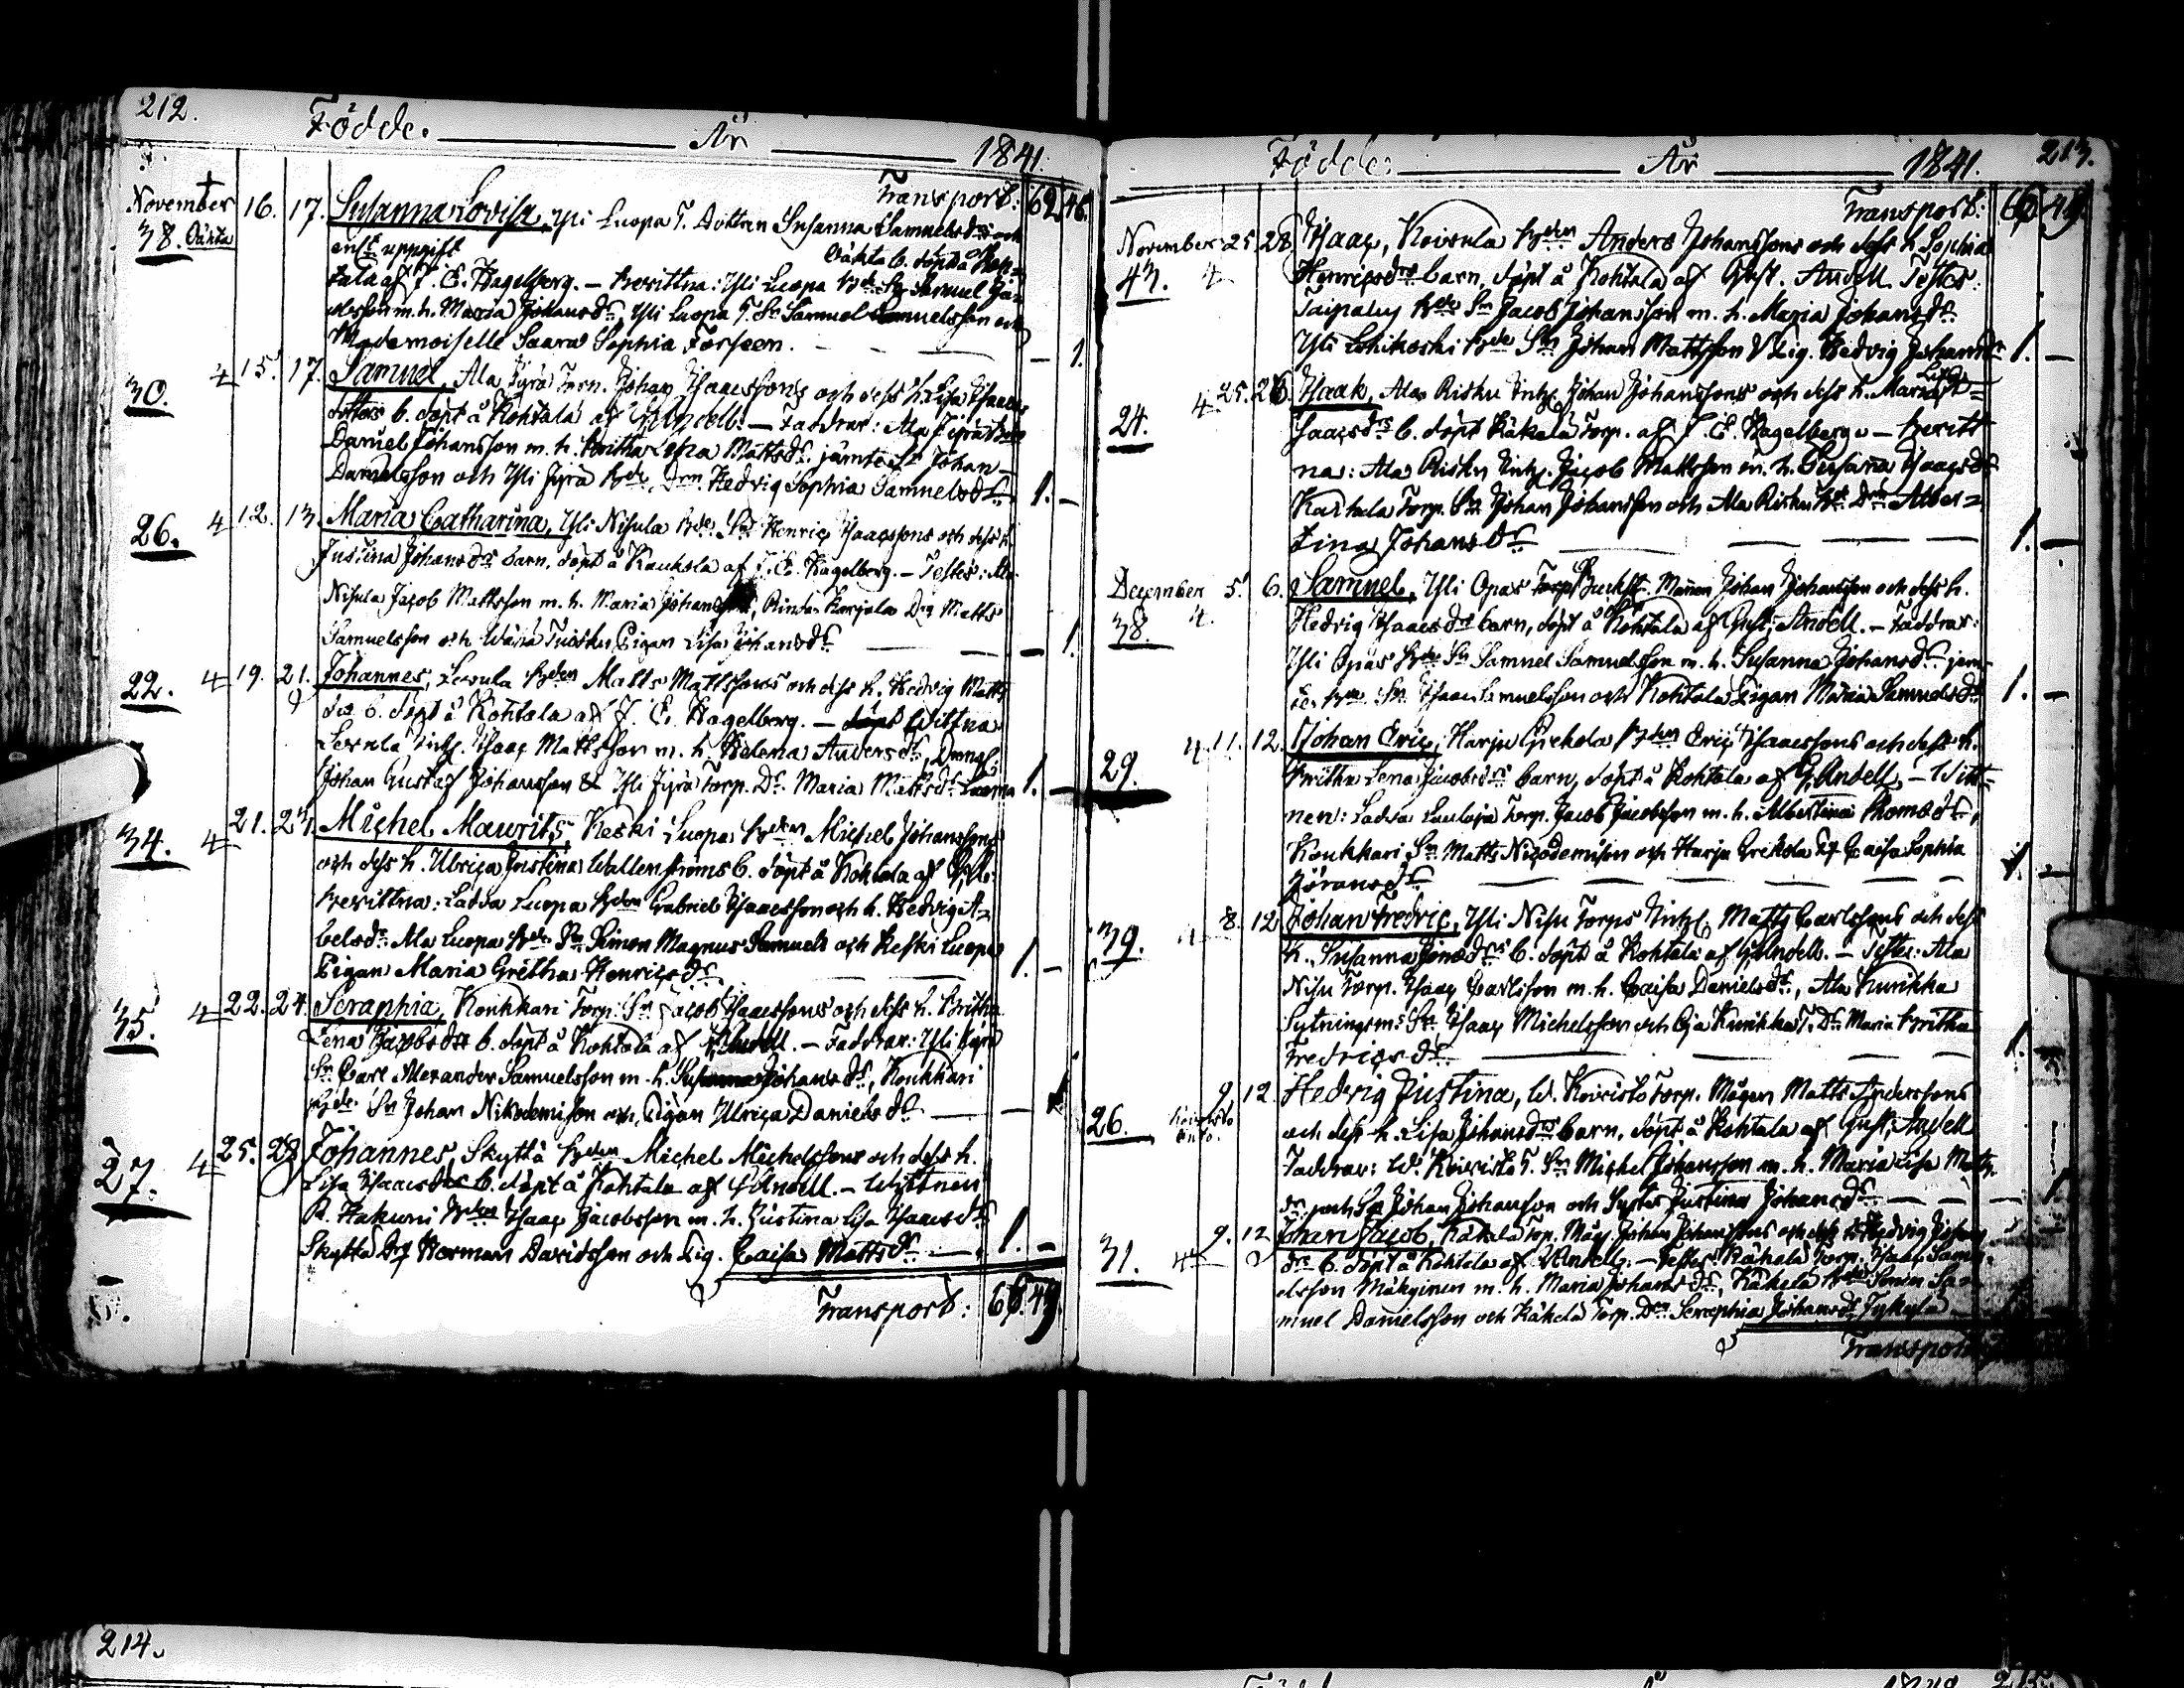 212. Födde. År 1841.
Transport: 62. 48.
November 16. 17. Susanna Lovisa, Yli Luopa T. Dottren Susanna Samuelsdrs och
38. Oäkta enl uppgift Oäkta b. döpt å Koh=
tala af J. E. Hagelberg. — Bevittna: Yli Luopa Bde Sn Samuel
m. h. Maria Johansdr, Yli Luopa T. Sn Samuel Samuelsson och
Mademoiselle Saara Sophia Forsseen. — 1.
30. 4 15. 17. Samuel, Ala Jyrä Torp. Johan Isaacssons och dess h. Lisa Isaacs
dotters b. döpt å Kohtala af — Faddrar: Ala Jyrä
Daniel Johansson m. h. Britha Lena Mattsdr. jämte Sn Johan
Danielsson och Yli Jyrä Bde Drn Hedvig Sophia Samuelsdr 1. —
26. 4 12. 13. Maria Catharina, Yli Nisula Bde Sn Henric Isaacssons och dess h.
Justina Johansdrs barn, döpt å Kauhola af J. E. Hagelberg. — Testes: Ala
Nisula Jacob Mattsson m. h. Maria Rinda Karjala Drg Matts
Samuelsson och Tuisku Pigan Lisa Johansdr — 1.
22. 4 19. 21. Johannes, Lervula Bden Matts Mattssons och dess h. Hedvig Matts
drs b. döpt å Kohtala af J. E. Hagelberg. — döpt Wittna
Isaac Mattsson m. h. Helena Andersdr, Drengl:
Johan Gustaf Johansson & Yli Jyrä Torp. Dr. Maria Mattsdr 1. —
34. 4 21. 24. Michel Maurits, Keski Luopa Bden Michel Johanssons
och dess h. Ulrica Christina Wallenströms b. döpt å Kohtala af
Bevittna: Ladva Luopa Bden Gabriel Isaacsson och h. Hedvig A=
belsdr Ala Luopa Bde Sn Simon Magnus Samuels och Keski Luopa
Pigan Maria Gretha Henricsdr 1. —
35. 4 22. 24. Seraphia, Koukkari Torp. Sn Jacob Isaacssons och dess h. Britha
Lena Jacobsdrs b. döpt å Kohtala af Andell. — Faddrar: Yli Jyrä
Sn Carl Alexander Samuelsson m. h. Susanna Johansdr, Koukkari
Bde Sn Johan Nikodemison och Pigan Ulrica Danielsdr — 1
27. 4 25. 28 Johannes, Skyttä Bden Michel Michelssons och dess h.
Lisa Isaacsdrs b. döpt å Kohtala af G Andell. — Wittnen
R. Hakuni Bden Isaac Jacobsson m. h. Justina Lisa Isaacsdr
Skyttä Drg Herman Davidsson och Pig. Caisa Mattsdr 1. —
Transport: 66. 49.
Födde: År 1841. 213.
Transport: 66 49.
November 25. 28. Isaac, Koivula Bden Anders Johanssons och dess h. Sophia
43. 4 Henricsdrs barn, döpt å Kohtala af Gust. Andell. Testes:
Taipalus Bde Sn Jacob Johansson m. h. Maria Johansdr.
Yli Lohikoski Bde Sn Johan Mattsson & Pig. Hedvig Johansdr 1. —
24. 4 25. 26. Isaak, Ala Risku Inhs. Johan Johanssons och dess h. Maria Lisa
Isaacsdrs b. döpt Käkelä Torp. af J. E. Hagelberg — Bevitt
na: Ala Risku Inhs. Jacob Mattsson m. h. Susanna Isaacsdr
Torp. Sn Johan Johansson och Ala Risku Bde Drn Alber=
tina Johansdr 1. —
December 5. 6. Samuel, Yli Opas Johan Johansson och dess h.
38. 4. Hedvig Isaacsdrs barn, döpt å Kohtala af Gust. Andell. — Faddrar:
Yli Opas Bde Sn Samuel Samuelsson m. h. Susanna Johansdr. jem=
te Bde Sn Isaac Samuelsson och Kohtala Pigan Maria Samuelsdr 1. —
29. 4 11. 12. Johan Eric, Harju Grekola Bden Eric Isaacssons och dess h.
Britha Lena Jacobsdrs barn, döpt å Kohtala af G. Andell, — Witt=
nen: Ladva Laulaja Torp. Jacob Jacobsson m. h. Albertina Thomsdr,
Koukkari Sn Matts Nicodemison och Harju Grekola Caisa Sophia
Göransdr 1. —
39. 4 8. 12 Johan Fredric, Yli Nisu Torps Inhs. Matts Carlssons och dess
h. Susanna Jonsdrs b. döpt å Kohtala af G Andell. — Testes: Ala
Nisu Torp. Isaac Carlsson m. h. Caisa Danielsdr, Ala Kurikka
Sytningsm: Sn Isaac Michelsson och Oja Kurikka T. Dr. Maria Britha
Fredricsdr 1.
26. 9. 12. Hedvig Justina, W. Koivisto Torp. Mågen Matts Anderssons
och dess h. Lisa Johansdrs barn, döpt å Kohtala af Gust. Andell
Faddrar: W. Koivisto T. Sn Michel Johansson m. h. Maria Lisa Matts
dr och Sn Johan Johansson och Syster Justina Johansdr — 1
31. 4 9. 12 Johan Jacob, Käkelä Torp. Måg Johan Johanssons och dess h. Hedvig Johans
drs b. döpt å Kohtala af G Andell. — Testes: Käkelä Torp. Isaac Samu=
elsson Mäkynen m. h. Maria Johansdr, Käkelä Sa=
muel Danielsson och Käkelä Torp. Drn Seraphia Johansdr
Transport
214.